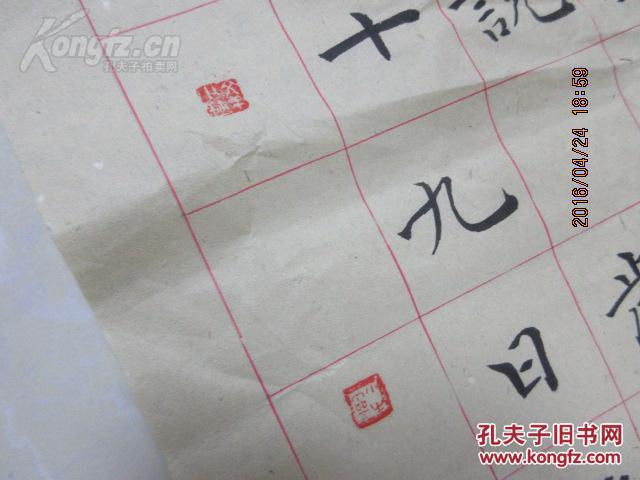 Kongfz.cn
孔夫子拍卖网
説
十九日
2016/04/24 18:59
孔夫子旧书网
www.kongfz.com